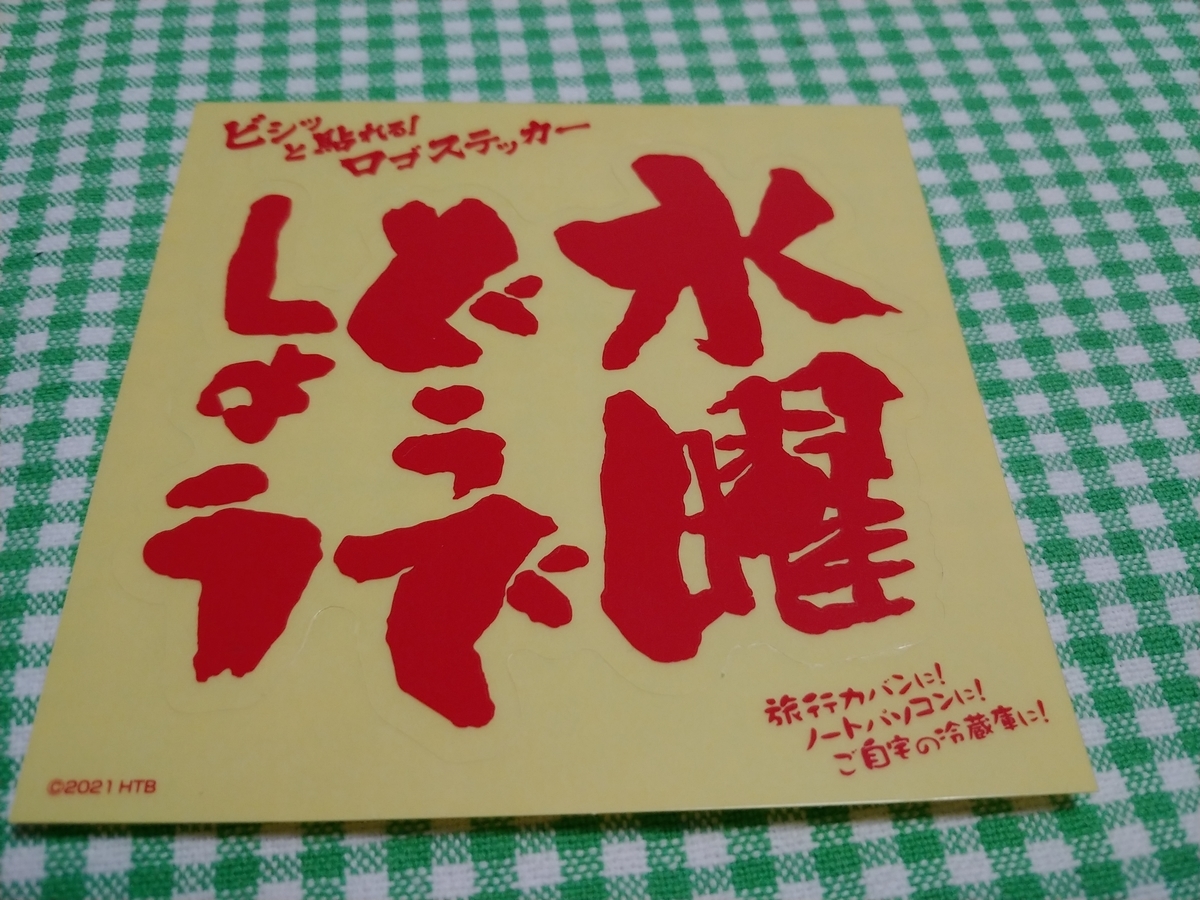 ビシッ
と貼れる!
ロゴステッカー
水曜
どうで
しょう
旅行カバンに!
ノートパソコンに!
ご自宅の冷蔵庫に!
©2021 HTB